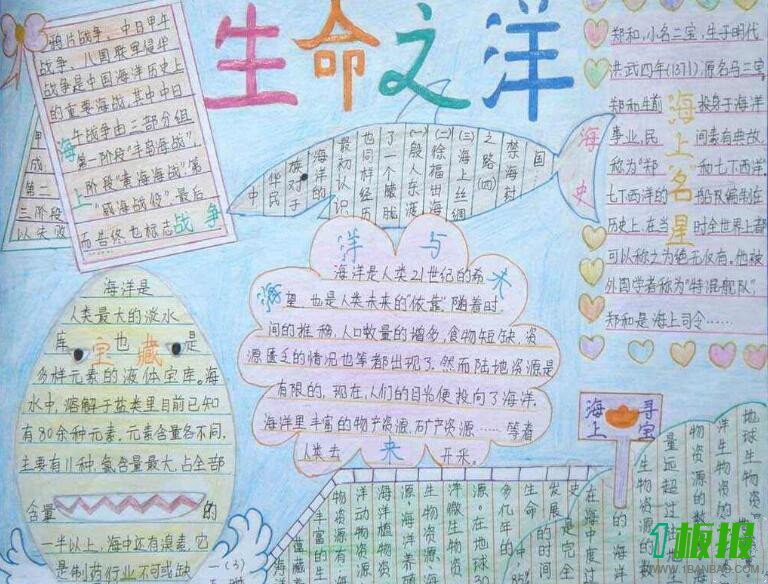 生命之洋
鸦片战争、中日甲午
战争、八国联军侵华
战争是中国海洋历史上
的重要海战,其中中日
午战争由三部分组
第一阶段"丰岛海战"第
上阶段"黄海海战"、
"威海战役"、最后
而告终,也标志
海上战争
甲
成
第二
三阶段
以失败
中
华民
族对于
海洋的
最初认识
也同样经历
了一个朦胧
(一)段人东渡
(二)徐福出海
(三)海上丝绸
之路(四)
禁海封
国…
海史
郑和,小名三宝,生于明代
洪武四年(1371)源名马三宝,
郑和生前 投身于海洋
事业,民 间素有典故,
称为"郑 和七下西洋.
七下西洋的 船队编制在
历史上,在当 时全世界上都
可以称之为绝无仅有。他被
外国学者称为"特混舰队"
郑和是海上司令……
海上名星
洋与
海洋是人类21世纪的希
望,也是人类未来的"依靠"随着时
间的推移,人口数量的增多,食物短缺,资
源匮乏的情况也等都出现了.然而陆地资源是
有限的,现在,人们的目光便投向了海洋.
海洋里丰富的物产资源、矿产资源……等着
人类去 开采。
海
未
来
海洋是
人类最大的淡水
库 也 是
宝藏
多样元素的液体宝库。海
水中,溶解于盐类里目前已知
有80余种元素。元素含量各不同,
主要有11种,氯含量最大,占全部
含量 的
一半以上,海中还有溴素,它
是制药行业不可或缺
一(3)
海上寻宝
地球生物
洋生物资
物资源的数
量远超过
生物资源
的,海洋
在海中度过
史是完全
发展的时间
生命
多亿年的
源。在地球30
洋微生物
生物资源
源海洋养殖
洋植物
洋动物
物资源有
丰富的生
1板报
WWW.1BANBAO.COM